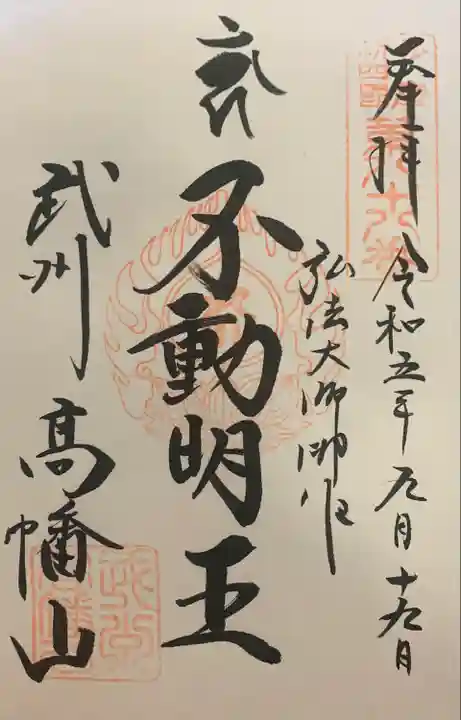 奉拝
令和五年九月十九日
弘法大師御作
不動明王
武州
高幡山